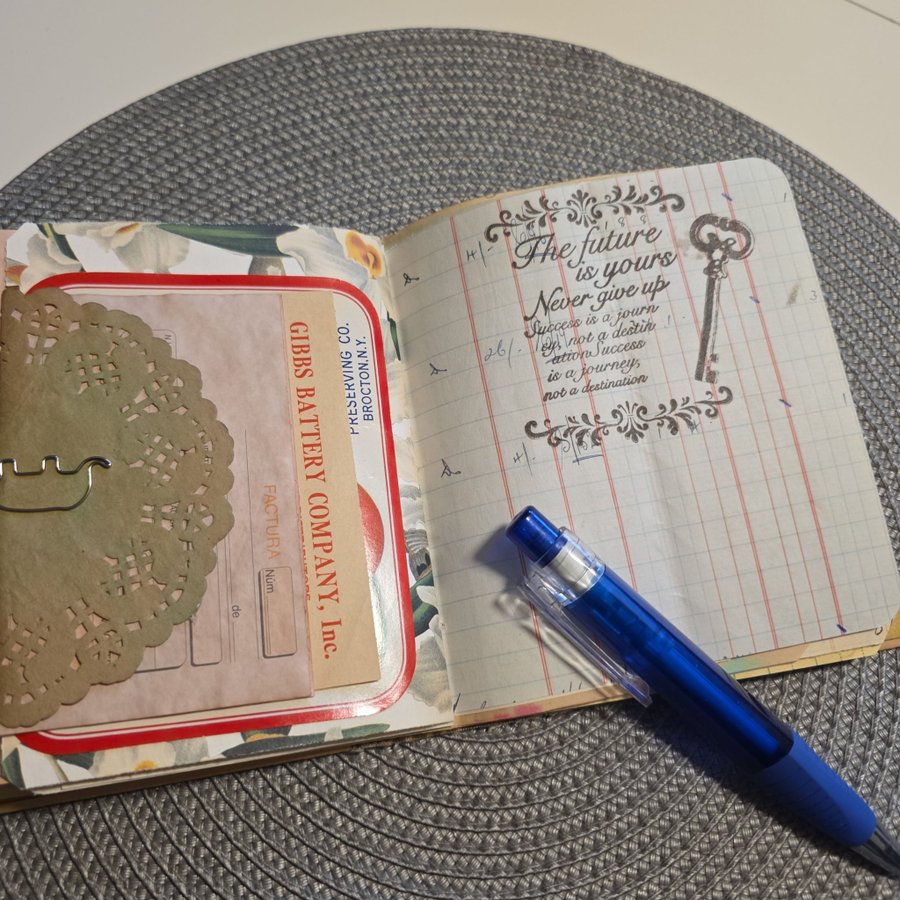 GIBBS BATTERY COMPANY, Inc.
PRESERVING CO.
BROCTON, N.Y.
FACTURA
Núm
de
The future
is yours
Never give up
Success is a journ
ey, not a destin
ation Success
is a journey,
not a destination